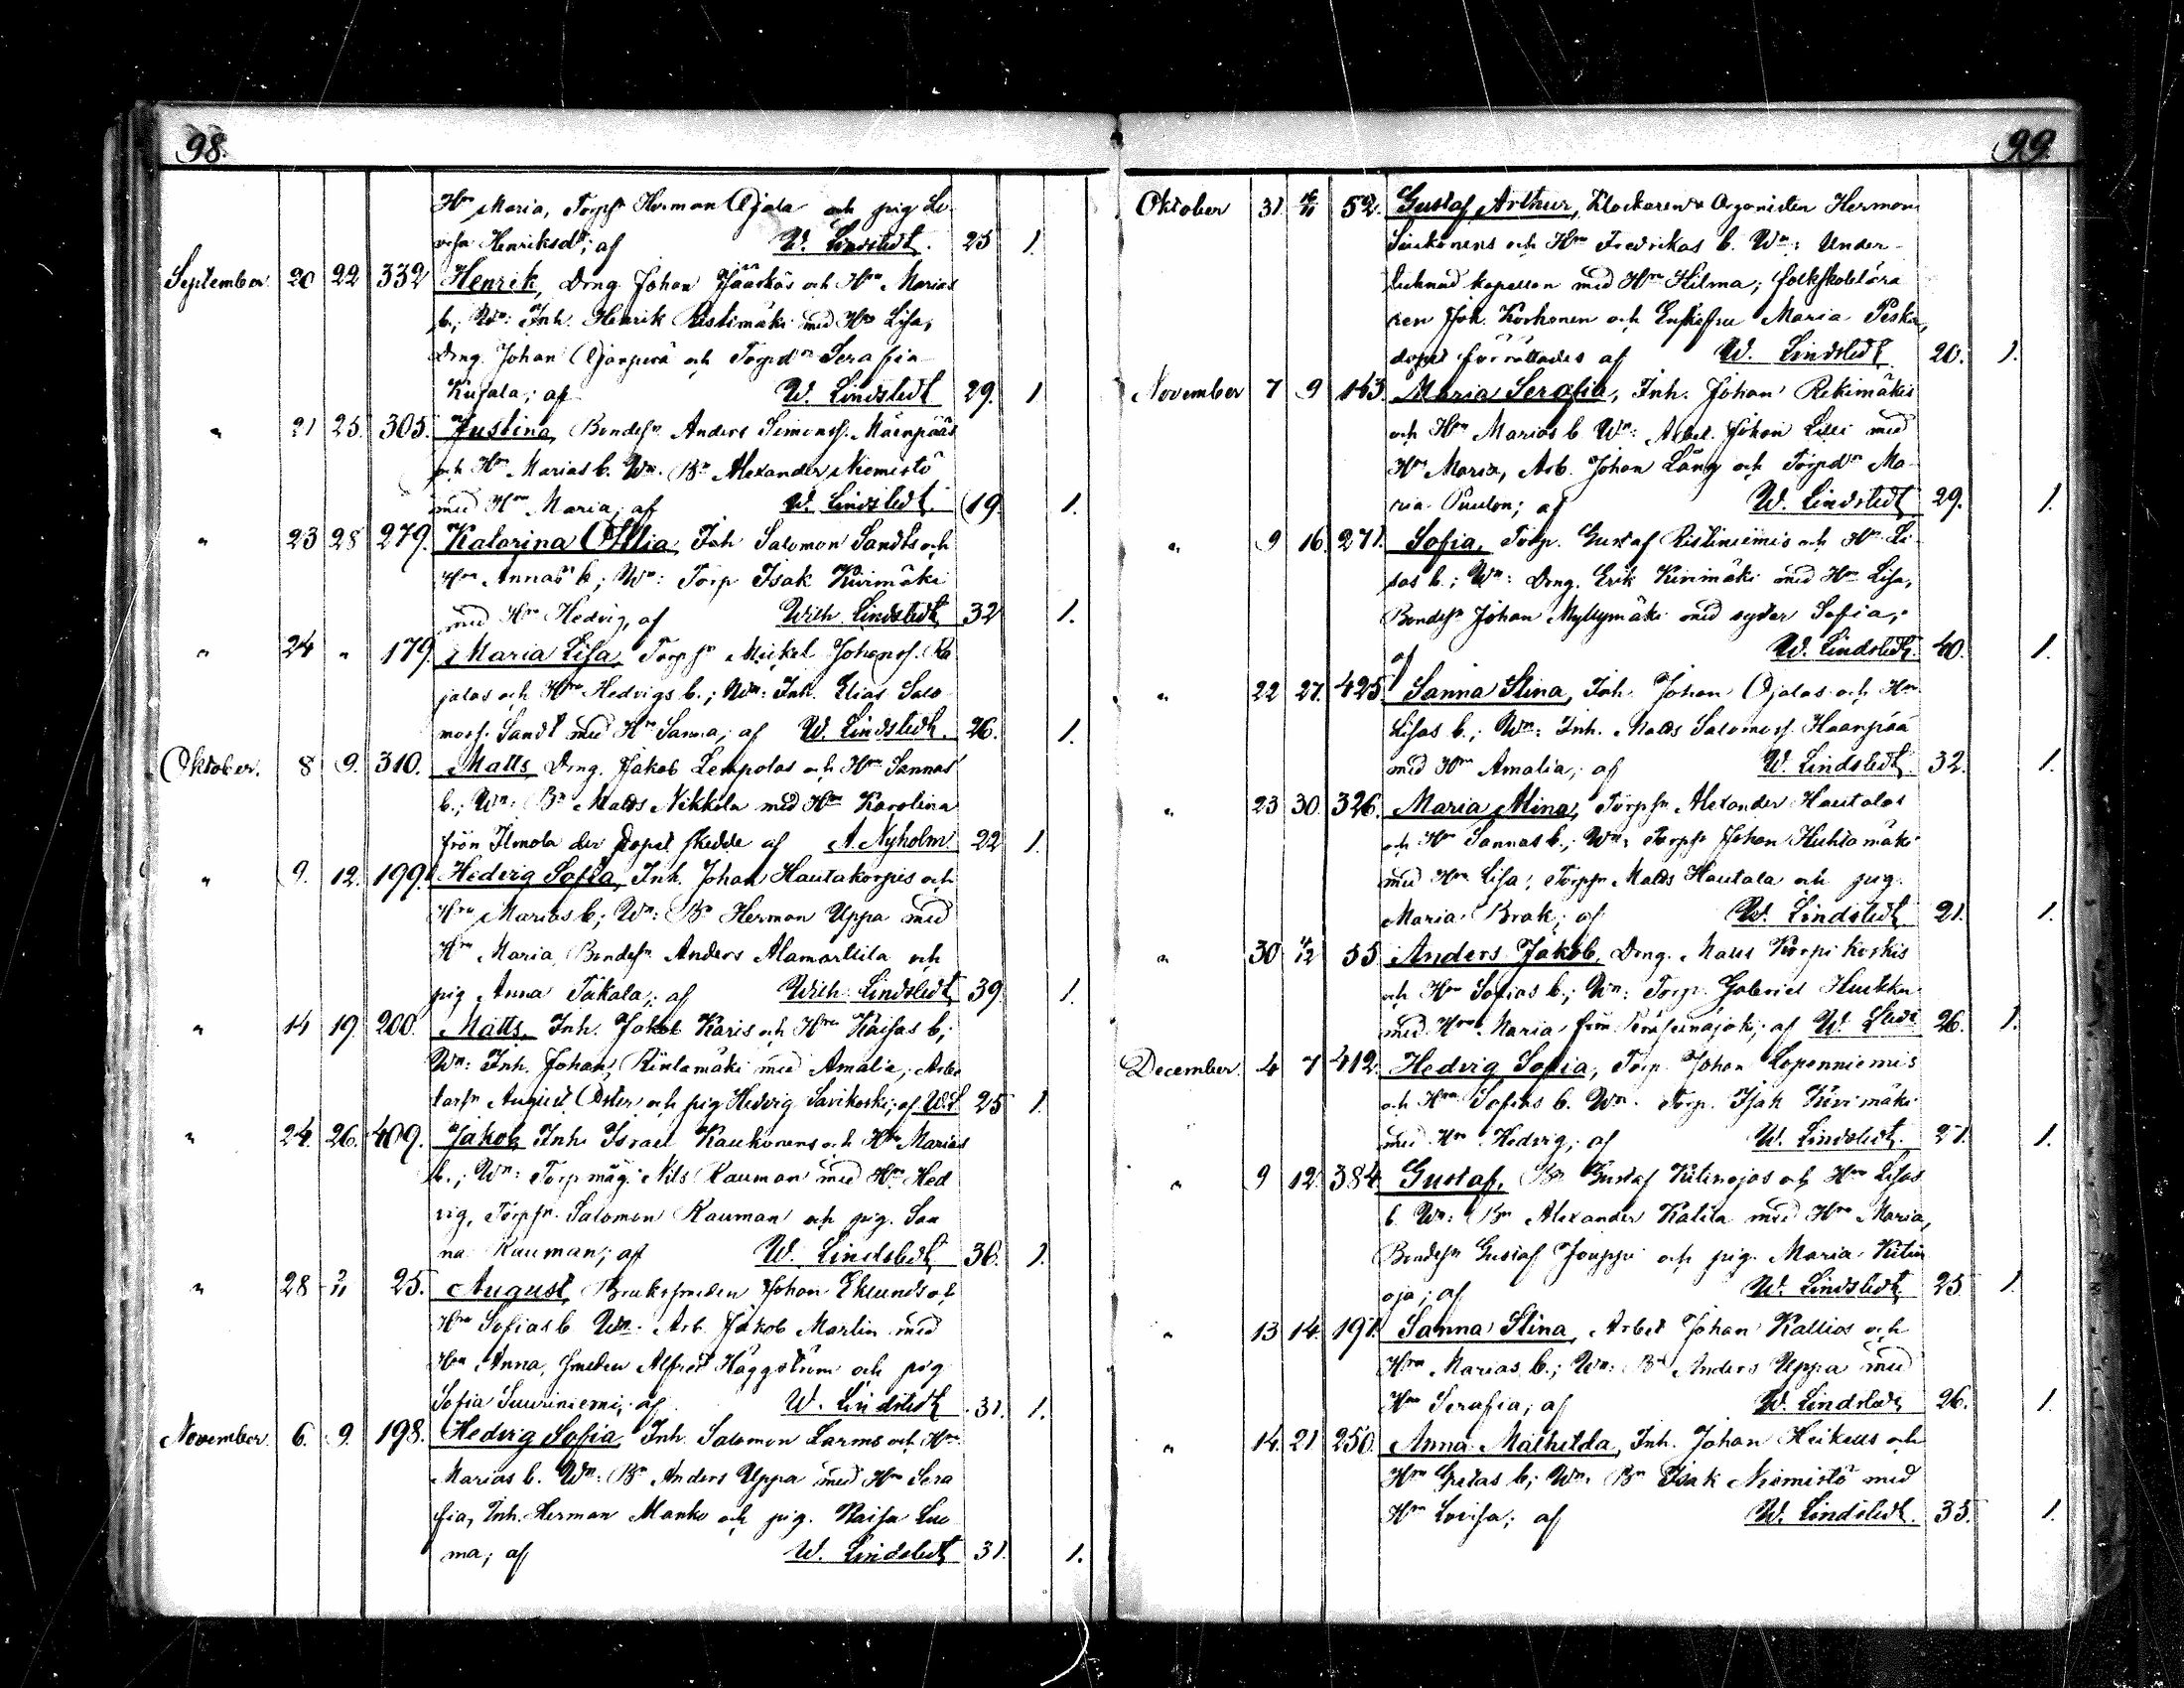 98.
Hru Maria, Torpsn Herman Ojala och pig Lo-
visa Henriksdr; af W. Lindstedt. 25 1.
September 20 22 332 Henrik, Dreng Johan Jääskös och Hru Marias
b.; Wn: Inh. Henrik Ristimäki med Hru Lisa,
Dreng Johan Ojanperä och Torpdr Serafia
Kujala; af W. Lindstedt 29. 1
" 21 25. 305. Justina, Bondesn Anders Simonss. Mäenpääs
och Hru Marias b. Wn. Bn Alexander Niemistö
med Hru Maria, af W. Lindstedt. 19. 1.
" 23 28 279. Katarina Ottilia, Inh Salomon Sandts och
Hru Annas b; Wn: Torp Isak Kivimäki
med Hru Hedvig, af Wilh Lindstedt 32 1.
" 24 " 179. Maria Lisa, Torpsn Mickel Johanss. Ra
jalas och Hru Hedvigs b.; Wn: Inh. Elias Salo
mons. Sandt med Hru Sanna; af W. Lindstedt. 26. 1.
Oktober. 8 9. 310. Matts, Dreng. Jakob Lempolas och Hru Sannas
b.; Wn: Bn Matts Nikkola med Hru Karolina
från Ilmola der dopet skedde af A. Nyholm 22 1.
" 9. 12. 199. Hedvig Sofia, Inh. Johan Hautakorpis och
Hru Marias b; Wn: Bn Herman Uppa med
Hru Maria, Bondesn Anders Alamarttila och
pig Anna Takala; af Wilh Lindstedt 39 1.
" 14 19. 200. Matts, Inh. Jakob Karis och Hru Kaisas b;
Wn: Inh. Johan Rintamäki med Amalia, Arbe
tarsn August Öster och pig Hedvig Savikoski; af W.L 25 1.
" 24 26. 409. Jakob, Inh. Israel Kaukonens och Hru Marias
b.; Wn: Torpmåg Nils Rauman med Hru Hed
vig, Torpsn. Salomon Rauman och pig. San
na Rauman; af W. Lindstedt 36. 1.
" 28 2/11 25. August, Bruksmeden Johan Eklunds och
Hru Sofias b Wn. Arb. Jakob Martin med
Hru Anna, smeden Alfred Häggström och pig
Sofia Suuriniemi; af W. Lindstedt 31. 1.
November. 6. 9. 198. Hedvig Sofia, Inh. Salomon Larms och Hru
Marias b. Wn: Bn Anders Uppa med Hru Sera
fia, Inh. Herman Manko och pig. Kaisa Luo
ma; af W. Lindstedt 31. 1.
99.
Oktober 31 52. Gustaf Arthur, Klockaren & Organisten Herman
och Hru Fredrikas b. Wn: Under-
tecknad kapellan med Hru Hilma; folkskolelära
ren Joh. Korhonen och Enkefru Maria
dopet förrättades af W. Lindstedt 20. 1.
November 7 9 163. Maria Serafia, Inh. Johan Rekimäkis
och Hru Marias b Wn: Arbet. Johan Lilli med
Hru Maria, Arb. Johan Lång och Torpdr Ma-
ria; af W. Lindstedt 29. 1.
" 9 16. 271. Sofia, Torp. Gustaf Ristiniemis och Hru Li-
sas b.; Wn: Dreng. Erik Kivimäki med Hru Lisa,
Bondesn Johan Myllymäki med syster Sofia;
af W. Lindstedt. 40. 1.
" 22 27. 425. Sanna Stina, Inh. Johan Ojalas och Hru
Lisas b.; Wn: Inh. Matts Salomonss. Haanpää
med Hru Amalia; af W. Lindstedt. 32. 1.
" 23 30. 326. Maria Alina, Torpsn Alexander Hautalas
och Hru Sannas b.; Wn: Torpsn Johan Huhtamäki
med Hru Lisa, Torpsn Matts Hautala och pig.
Maria Brak; af W. Lindstedt 21. 1.
" 30 4/12 55 Anders Jakob, Dreng. Matts Korpikoskis
och Hru Sofias b.; Wn: Torp. Gabriel
med Hru. Maria från Peräseinäjoki; af W. 26. 1.
December. 4 7 412. Hedvig Sofia, Torp. Johan Loponniemis
och Hru Sofias b. Wn. Torp. Isak Kivimäki
med Hru Hedvig; af W. Lindstedt. 27. 1.
" 9 12. 384. Gustaf, Bn Gustaf Kitinojas och Hru Lisas
b. Wn: Bn Alexander Katila med Hru Maria,
Bondesn Gustaf Jouppi och pig. Maria Kitin
oja; af W. Lindstedt 25 1.
" 13 14. 191. Sanna Stina, Arbet Johan Kallios och
Hru Marias b.; Wn: Bn Anders Uppa med
Hru Serafia; af W. Lindstedt 26. 1.
" 14. 21 250. Anna Mathilda, Inh. Johan Heikus och
Hru Gretas b; Wn. Bn Isak Niemistö med
Hru Lovisa; af W. Lindstedt. 33. 1.